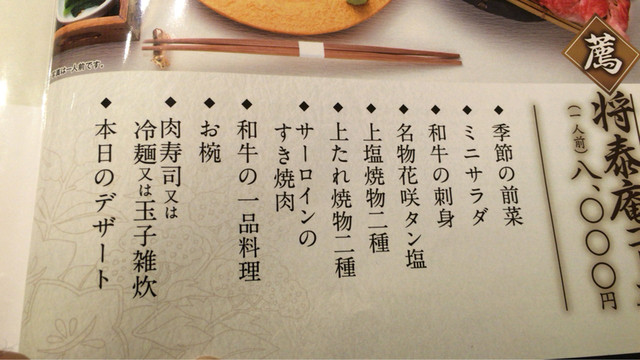 薦
将泰庵
(一人前)八、〇〇〇円
◆季節の前菜
◆ミニサラダ
◆和牛の刺身
◆名物花咲タン塩
◆上塩焼物二種
◆上たれ焼物二種
◆サーロインの
すき焼肉
◆和牛の一品料理
◆お椀
◆肉寿司又は
冷麺又は玉子雑炊
◆本日のデザート
一人前です。